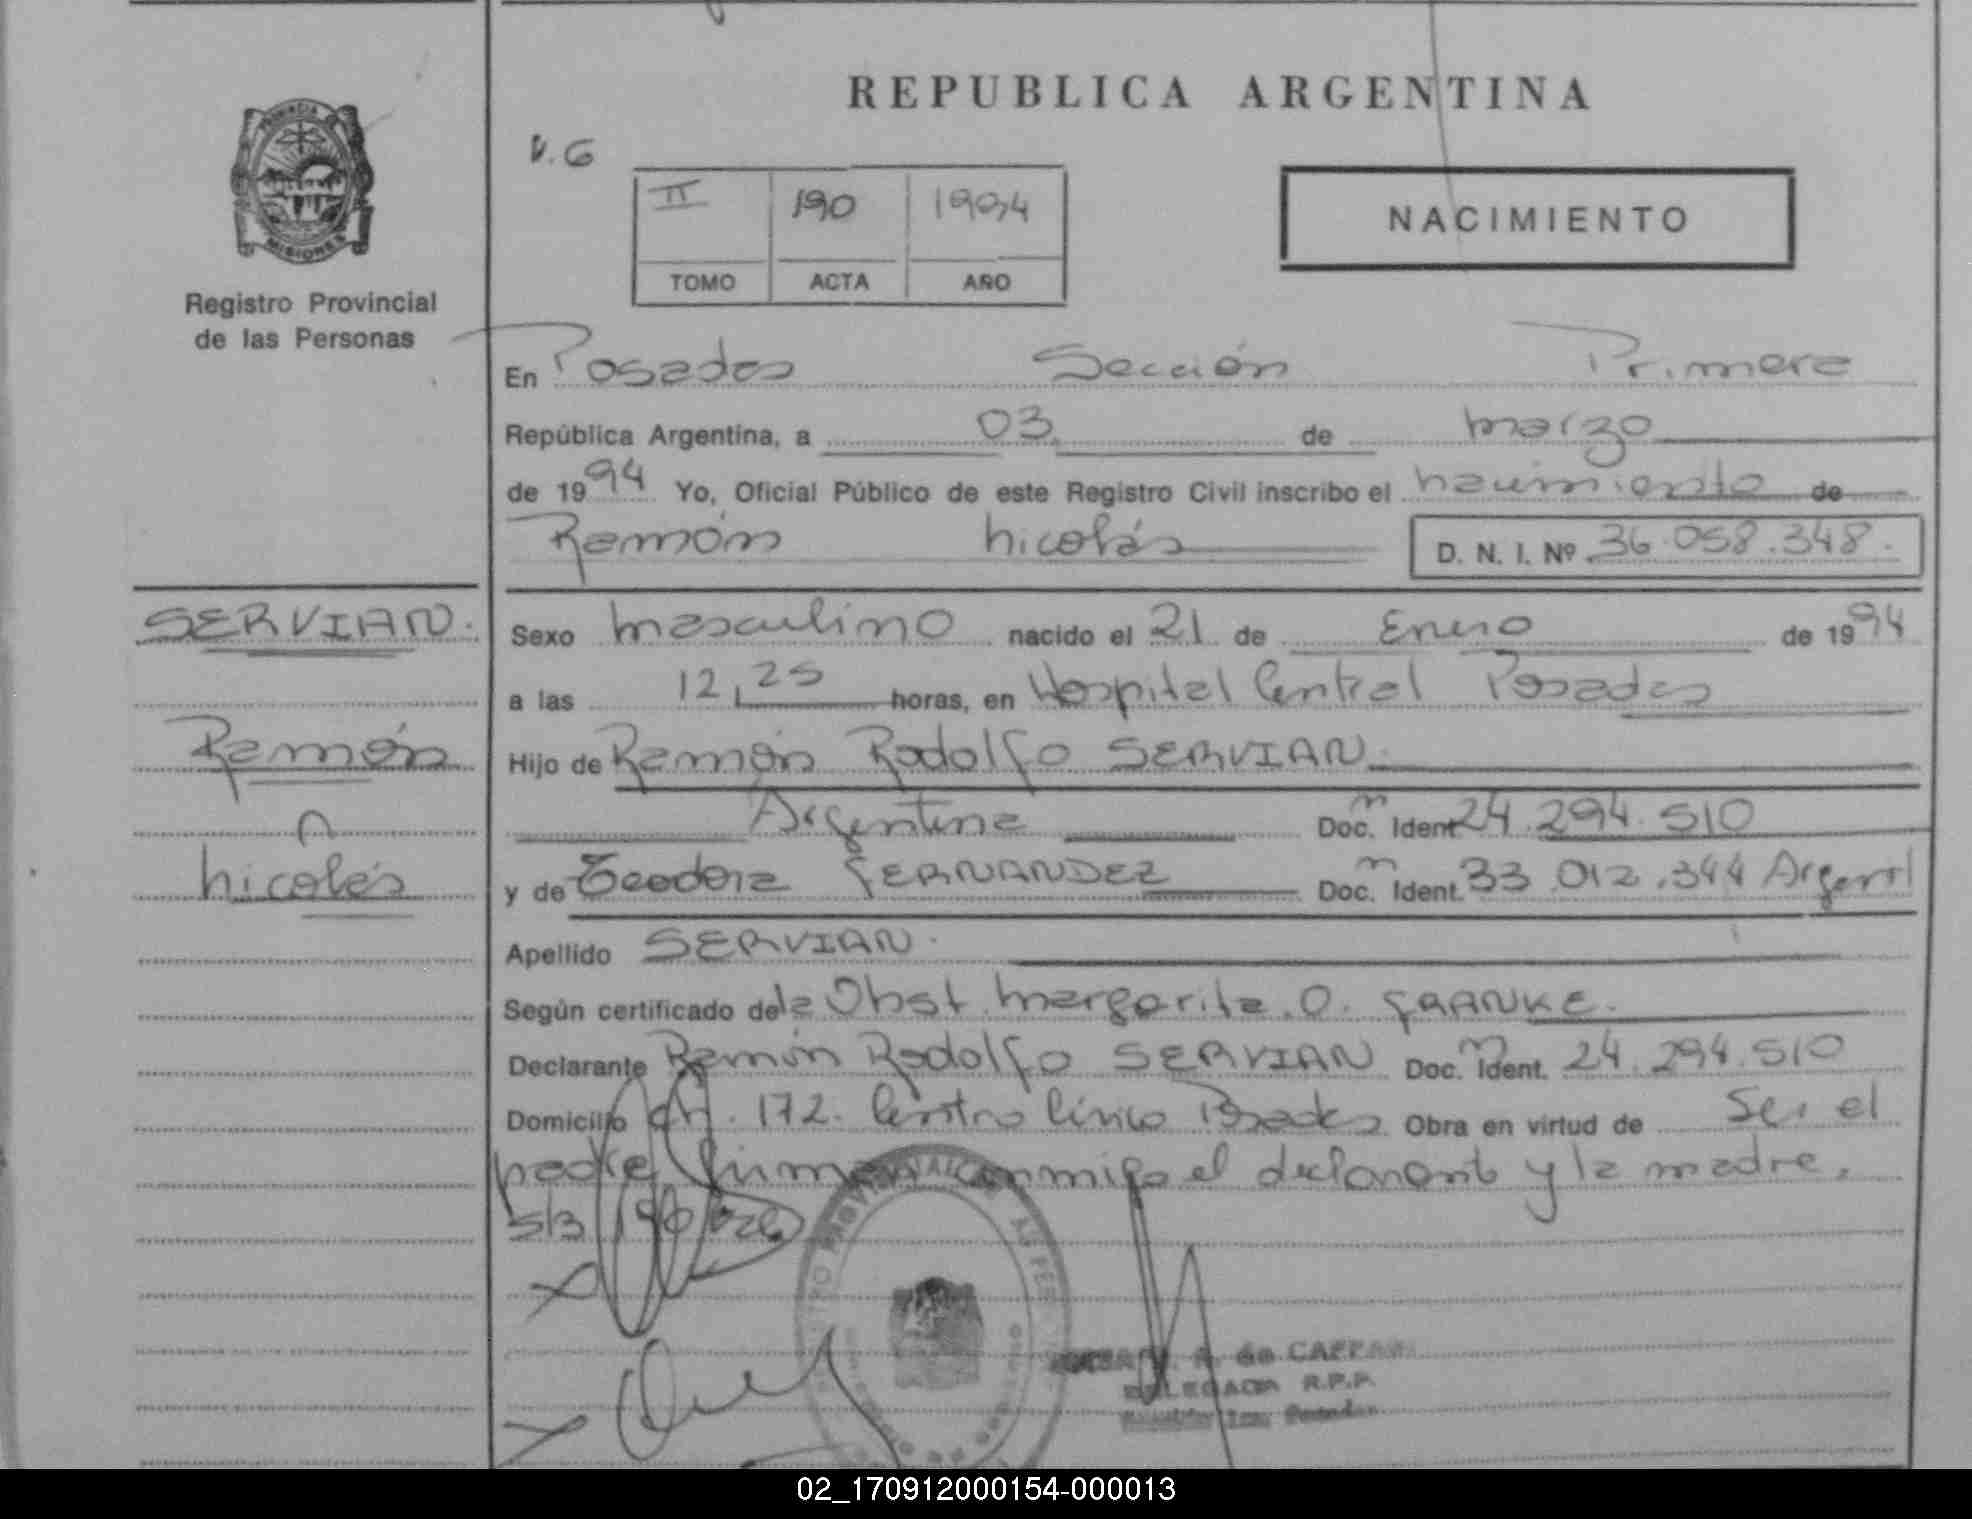 REPUBLICA ARGENTINA
PROVINCIA
MISIONES
Registro Provincial
de las Personas
V.G
II 190 1994
TOMO ACTA AÑO
NACIMIENTO
En Posadas Sección Primera
República Argentina, a 03 de marzo
de 1994 Yo, Oficial Público de este Registro Civil inscribo el nacimiento de
Ramón Nicolás D. N. I. Nº 36.058.348.
SERVIAN.
Ramón
Nicolás
Sexo masculino nacido el 21 de Enero de 1994
a las 12,25 horas, en Hospital Central Posadas
Hijo de Ramón Rodolfo SERVIAN.
Argentina Doc. Ident. 24.294.510
y de Teodora FERNANDEZ Doc. Ident. 33.012.344 Argent
Apellido SERVIAN.
Según certificado de la Obst. Margarita. O. FRANKE.
Declarante Ramón Rodolfo SERVIAN Doc. Ident. 24.294.510
Domicilio CH. 172. Centro Cívico Posadas Obra en virtud de Ser el
padre, firman conmigo el declarante y la madre.
de CAFFA
DELEGADA R.P.P.
02_170912000154-000013